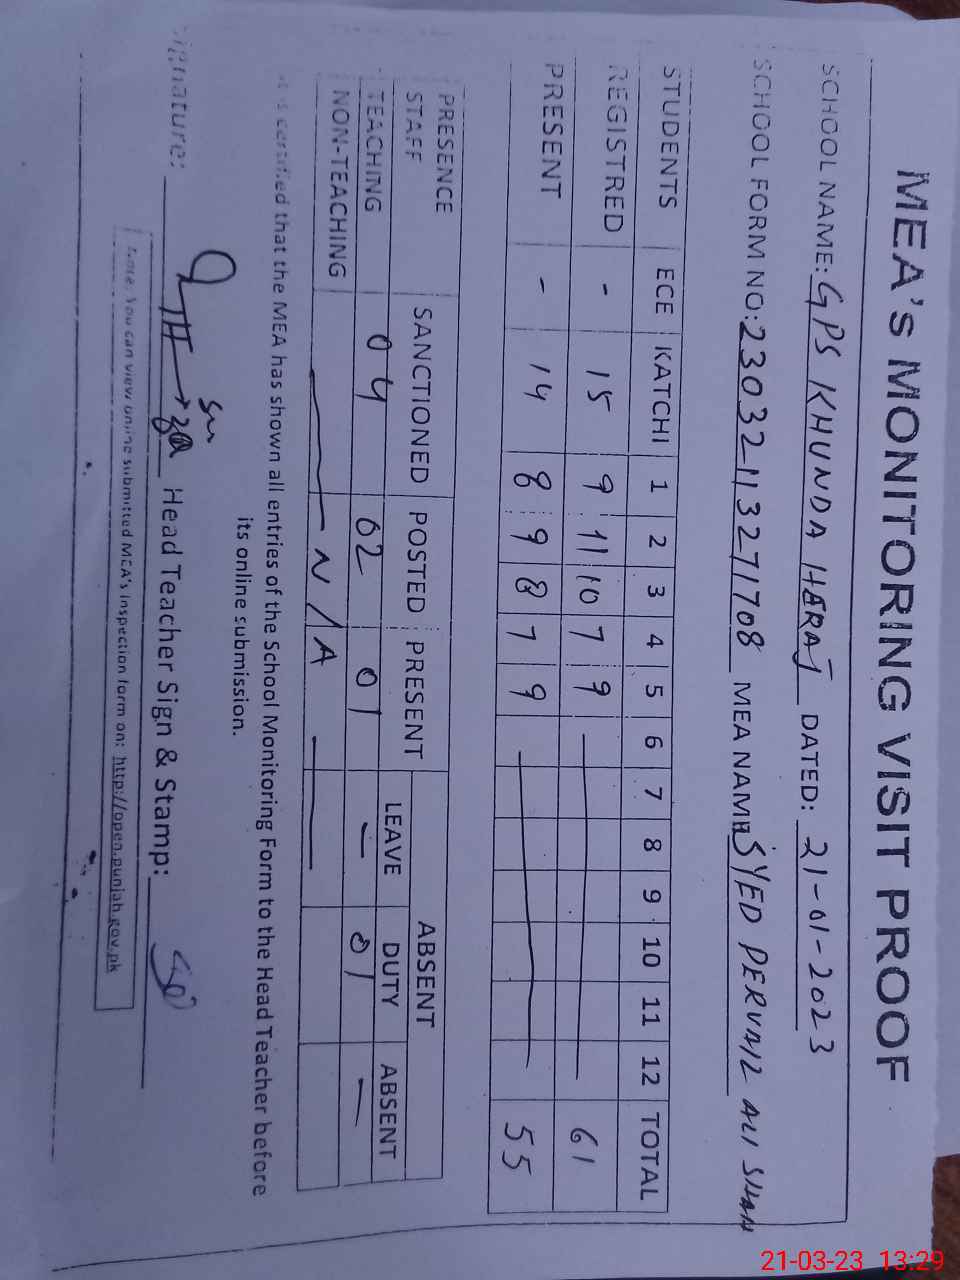 MEA's MONITORING VISIT PROOF
SCHOOL NAME: GPS KHUNDA HARAJ DATED: 21-01-2023
SCHOOL FORM NO: 23032113271708 MEA NAME SYED PERVAIZ ALI SHAH
STUDENTS ECE KATCHI 1 2 3 4 5 6 7 8 9 10 11 12 TOTAL
REGISTRED - 15 9 11 10 7 9 61
PRESENT - 14 8 9 8 7 9 55
PRESENCE SANCTIONED POSTED PRESENT ABSENT
STAFF LEAVE DUTY ABSENT
TEACHING 04 02 01 — 01 —
NON-TEACHING N/A
It is certified that the MEA has shown all entries of the School Monitoring Form to the Head Teacher before
its online submission.
Signature: Head Teacher Sign & Stamp:
Note: You can view online submitted MEA's Inspection form on: http://open.punjab.gov.pk
21-03-23 13:29